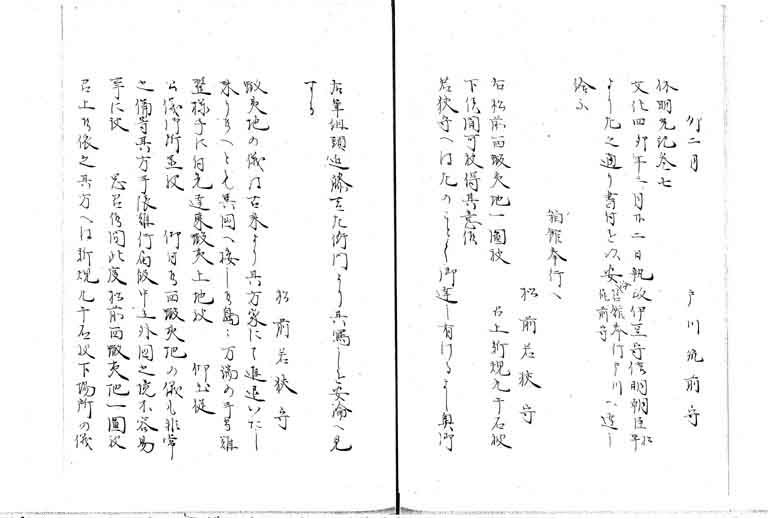 卯二月
戸川筑前守
休明光記巻七
文化四卯年二月廿二日執政伊豆守信明朝臣松平
より左之通り書付を以安論箱館奉行戸川筑前守へ達し
給ふ
箱館奉行へ
松前若狭守
右松前西蝦夷地一圓被 召上新規九千石被
下候間可被得其意候
若狭守へは左のことく御達し有けるよし奥御
右筆組頭近藤吉左衛門より其寫しを安論へ見
する
松前若狭守
蝦夷地の儀は古来より其方家にて進退いたし
来り候へとも異国へ接し候島々万端の手当難
整様子に付先達東蝦夷上地被 仰出従
公儀御所置被 仰付候西蝦夷地の儀も非常
之備等其方手限難行届段申立外国之境不容易
事に被 思召候間此度松前西蝦夷地一圓被
召上候依之其方へは新規九千石被下場所の儀